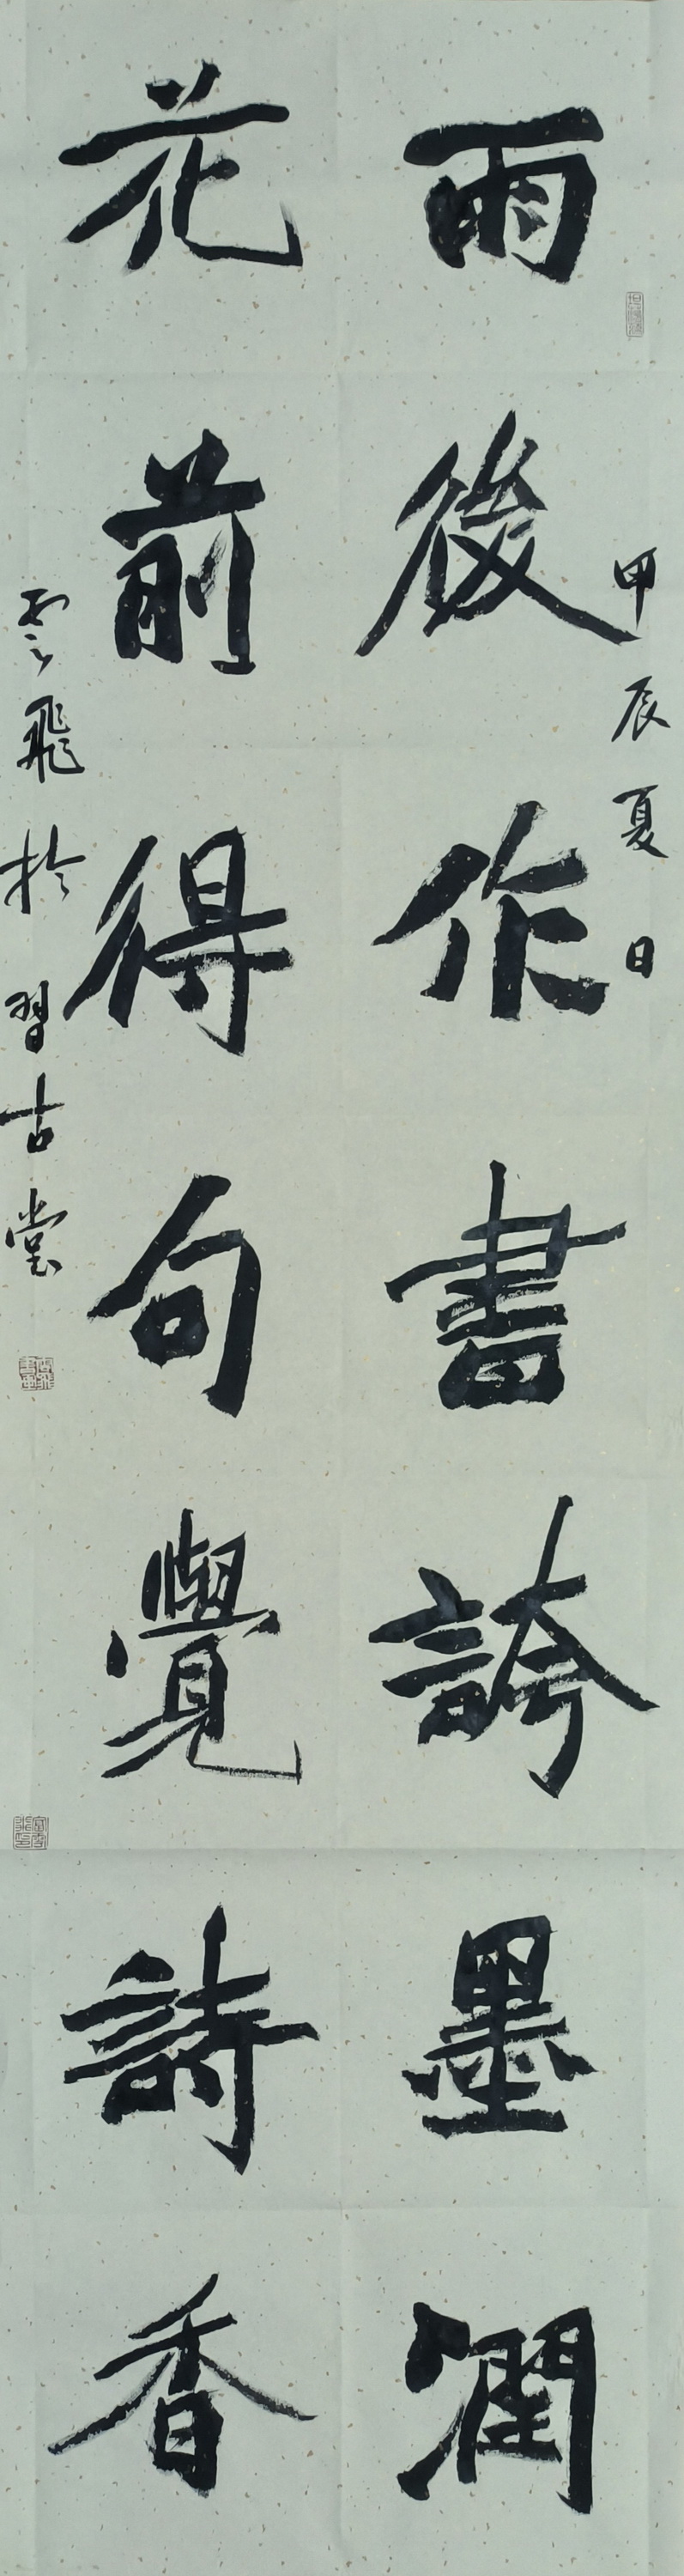 甲辰夏日
雨後作書誇墨潤
花前得句覺詩香
雲飛於習古堂